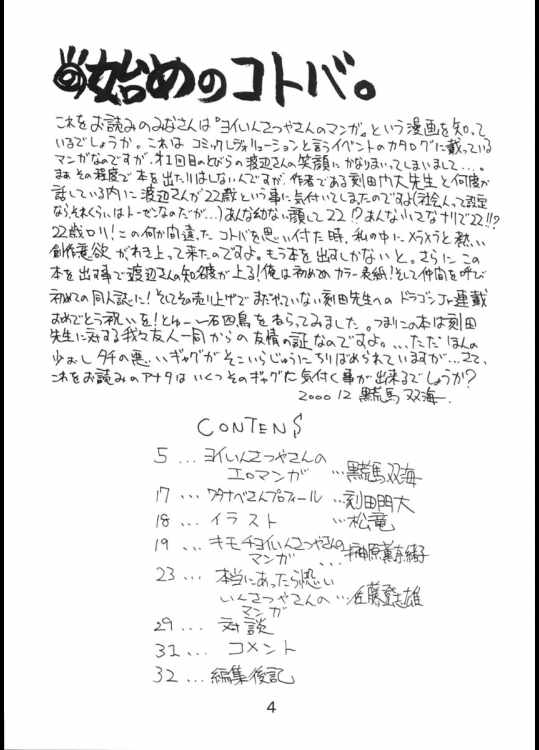 始めのコトバ。
これをお読みのみなさんは『ヨイいんさつやさんのマンガ』という漫画を知って
いるでしょうか。これはコミックレヴォリューションと言うイベントのカタログに載っている
マンガなのですが、オ1回目のとびらの渡辺さんの笑顔にかなりまいってしまいまして…。
まぁその程度で本を出したりはしないんですが、作者である刻田門大先生と何度か
話している内に渡辺さんが22歳という事に気付いてしまったのですよ(社会人って設定
ならそれくらいはトーゼンなのだが…)あんな幼ない顔して22!?あんなロでなナリで22!!?
22歳ロリ!この何か間違ったコトバを思い付た時、私の中にメラメラと熱い
創作意欲がわき上って来たのですよ。もう本を出すしかないと。さらにこの
本を出す事で渡辺さんの知名度が上る!俺は初めてのカラー表紙!そして仲間を呼び
初めての同人誌に!そしてその売り上げでまだやっていない刻田先生へのドラゴンJr連載
おめでとう祝いを!とゆー一石四鳥をねらってみました。つまりこの本は刻田
先生に対する我々友人一同からの友情の証なのですよ。…ただほんの
少おしタチの悪いギャグがそこいらじゅうにちりばめられていますが…さて、
これをお読みのアナタはいくつそのギャグに気付く事が出来るでしょうか?
2000 12 黒荒馬 双海
CONTENS
5 … ヨイいんさつやさんの
エロマンガ …黒荒馬双海
17 … ワタナベさんプロフィール …刻田門大
18 … イラスト …松竜
19 … キモチヨイいんさつやさんの
マンガ …榊原薫奈緒子
23 … 本当にあったら恐い
いんさつやさんの …佐藤登志雄
マンガ
29 … 対談
31 … コメント
32 … 編集後記
4